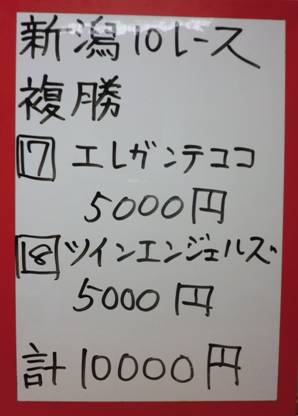 新潟10レース
複勝
17 エレガンテココ
5000円
18 ツインエンジェルズ
5000円
計10000円